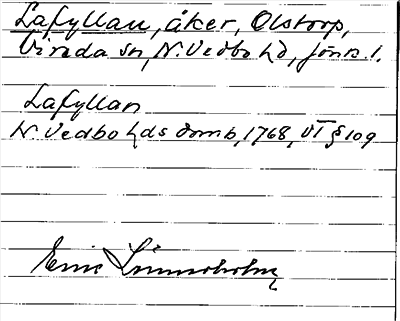 Lafyllan, åker, Olstorp,
Vireda sn, N. Vedbo hd, Jönk. l.
Lafyllan
N. Vedbo hds domb, 1768, VI § 109
Eric Linnerholm